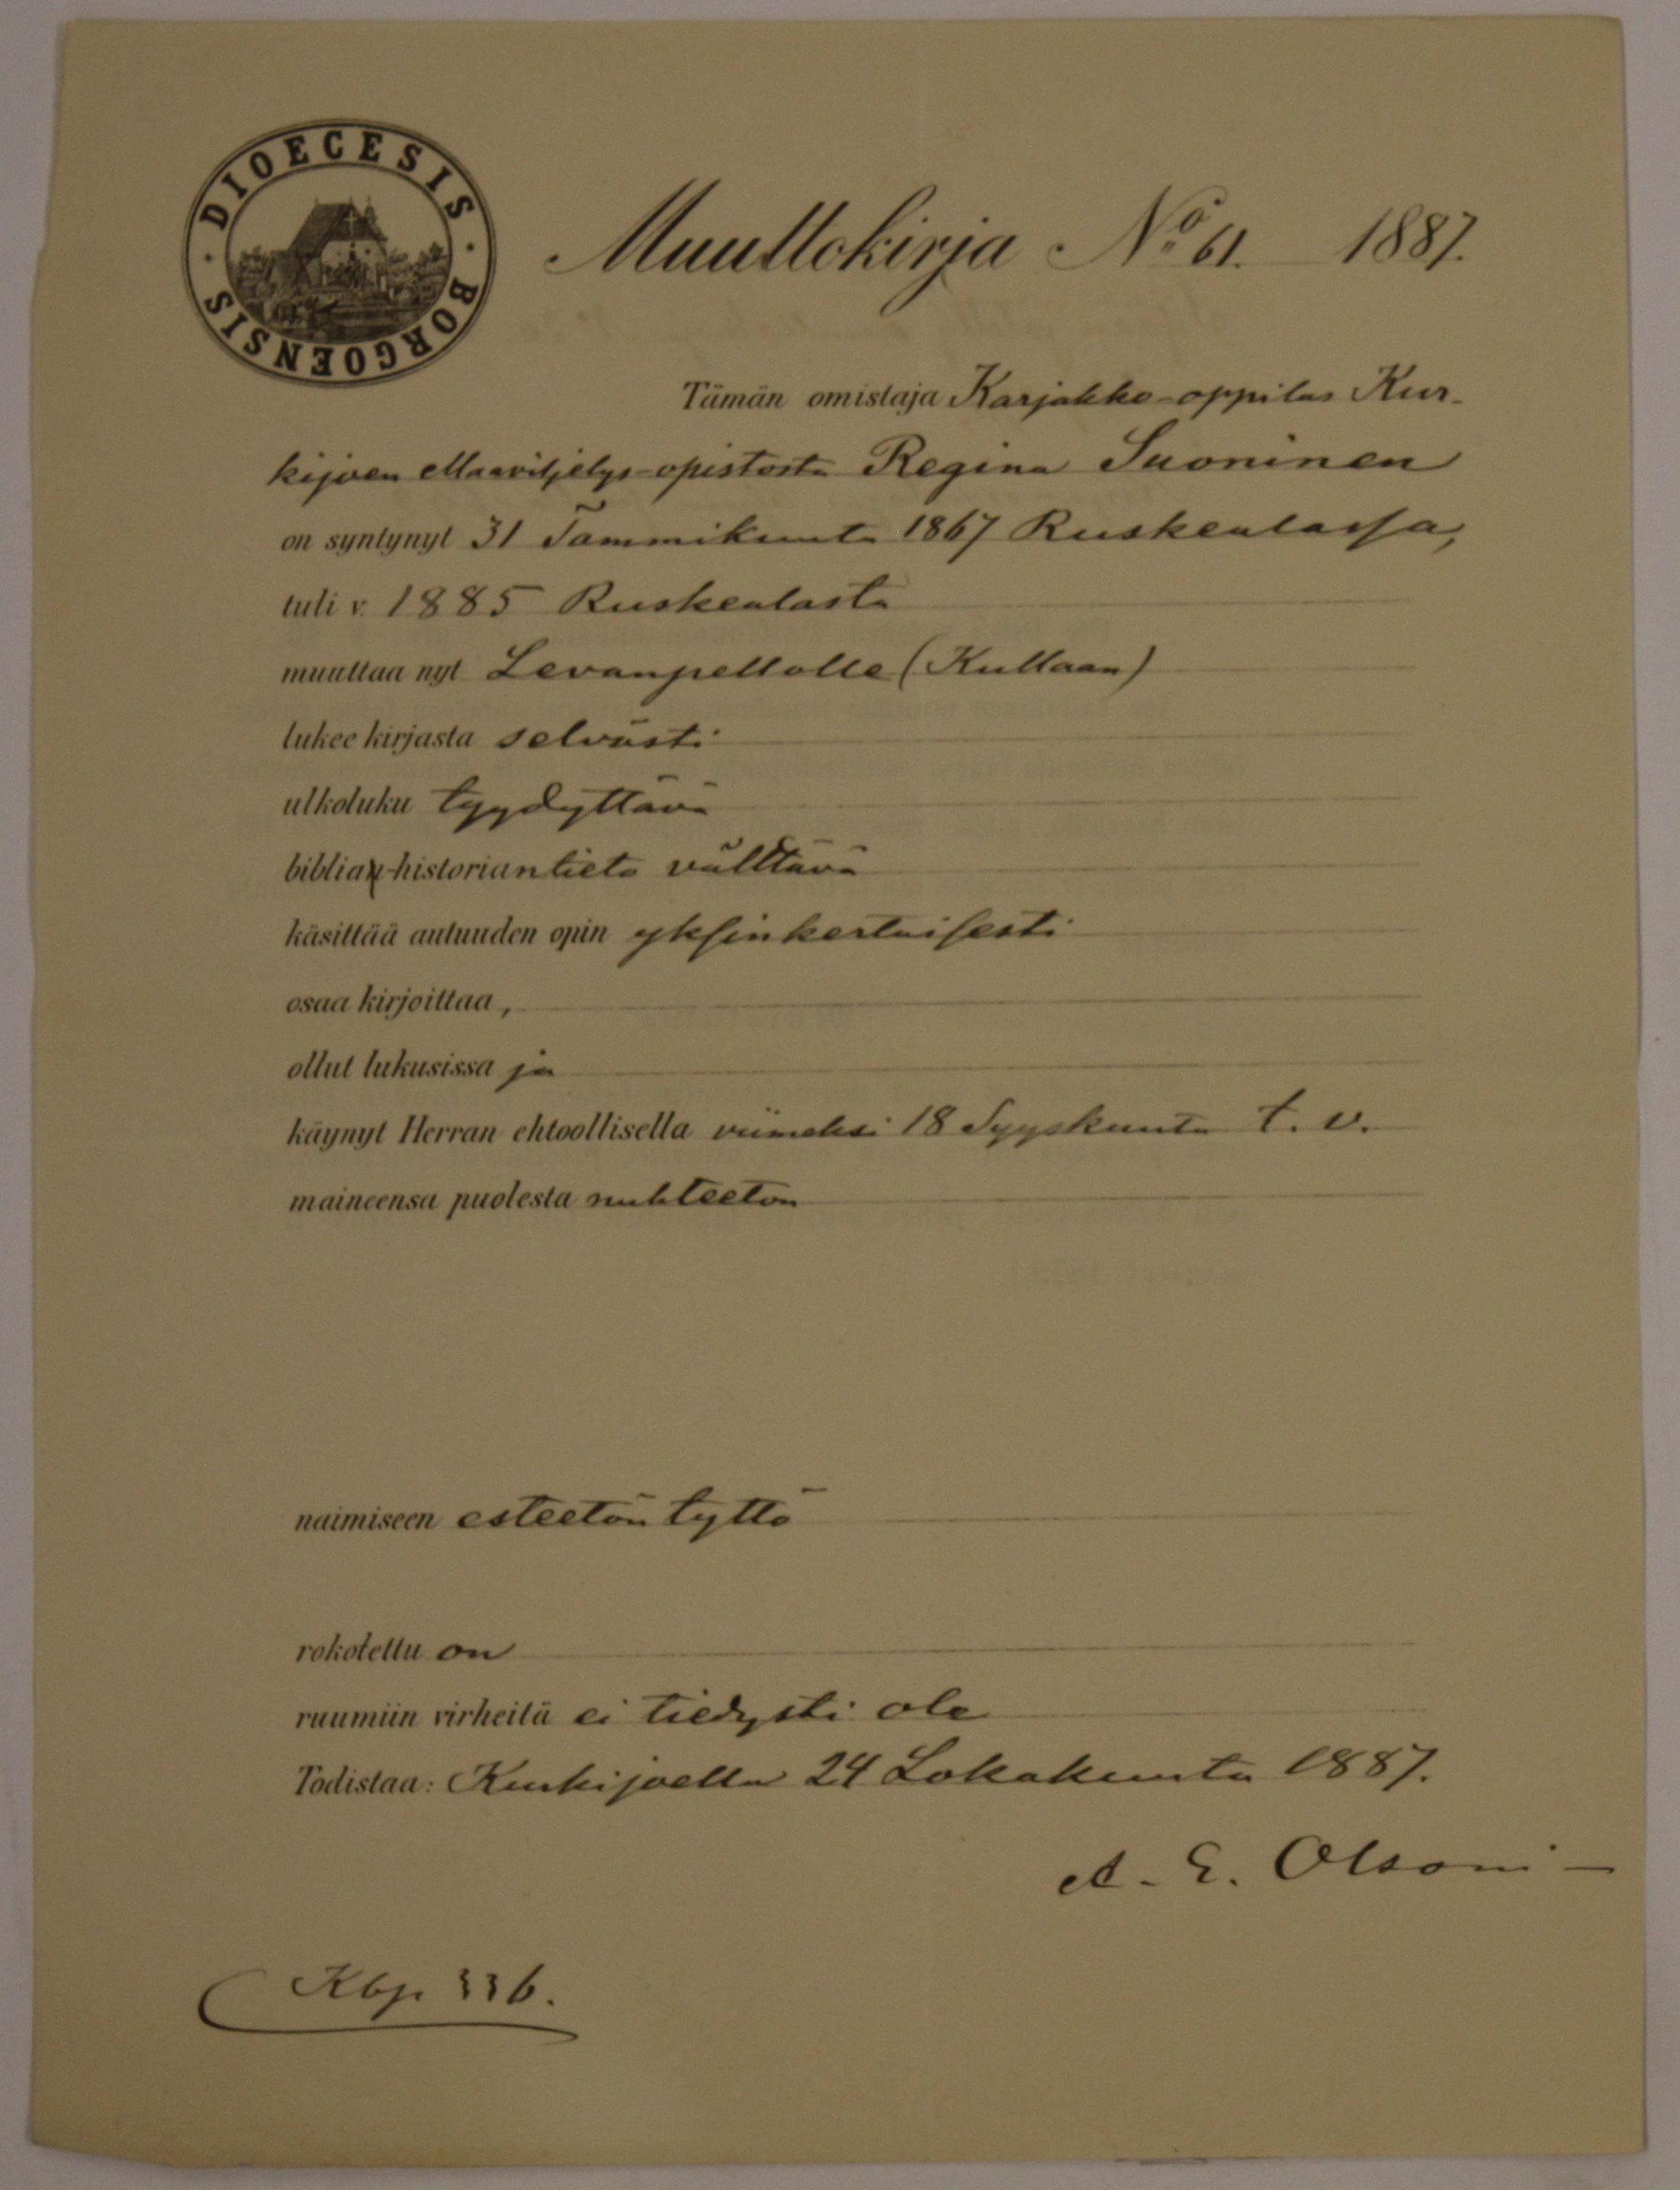 DIOECESIS · BORGOENSIS ·
Muuttokirja No 61. 1887.
Tämän omistaja Karjakko-oppilas Kur-
kijoen Maanviljelys-opistosta Regina Suoninen
on syntynyt 31 Tammikuuta 1867 Ruskealassa,
tuli v. 1885 Ruskealasta
muuttaa nyt Levanpellolle (Kullaan)
lukee kirjasta selvästi
ulkoluku tyydyttävä
biblian-historian tieto välttävä
käsittää autuuden opin yksinkertaisesti
osaa kirjoittaa,
ollut lukusissa ja
käynyt Herran ehtoollisella viimeksi 18 Syyskuuta t. v.
maineensa puolesta nuhteeton
naimiseen esteetön tyttö
rokotettu on
ruumiin virheitä ei tiedysti ole
Todistaa: Kurkijoella 24 Lokakuuta 1887.
A. E. Olsoni
Kbp. 336.